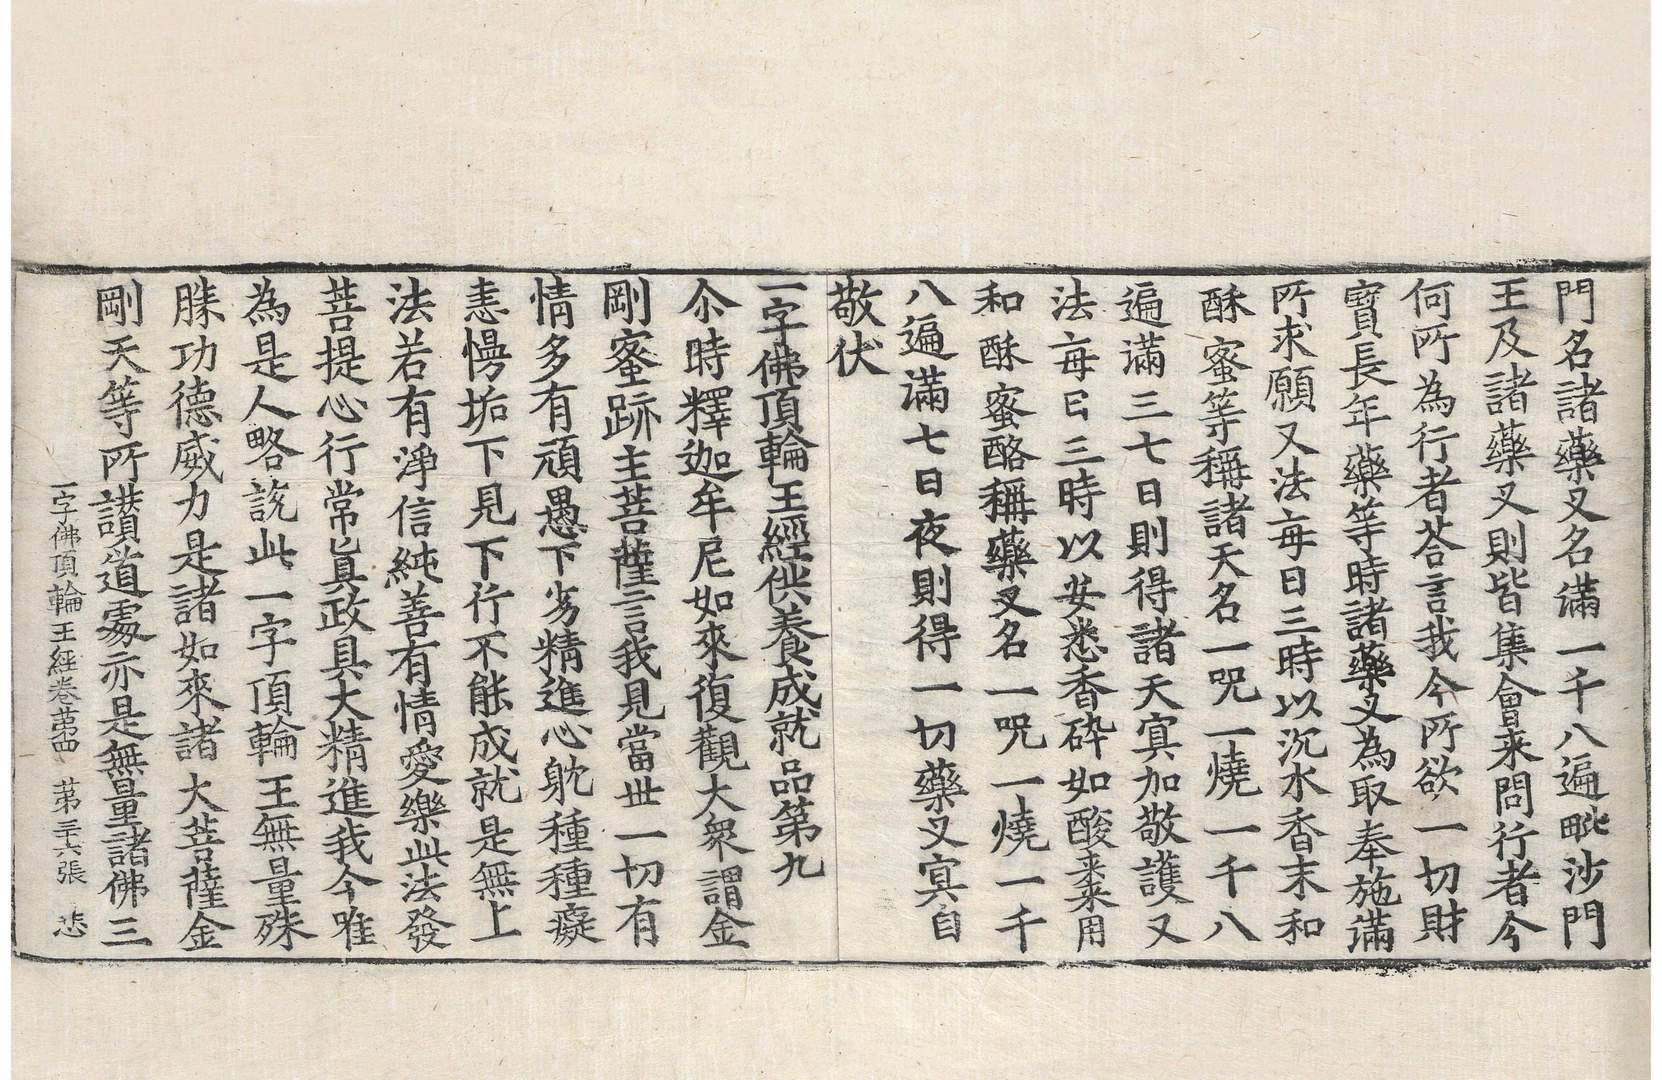 門名諸藥叉名滿一千八遍毗沙門
王及諸藥叉則皆集會來問行者今
何所為行者荅言我今所欲一切財
寶長年藥等時諸藥叉為取奉施滿
所求願又法每日三時以沉水香末和
酥蜜等稱諸天名一呪一燒一千八
遍滿三七日則得諸天㝠加敬護又
法每日三時以安悉香碎如酸棗用
和酥蜜酪稱藥叉名一呪一燒一千
八遍滿七日夜則得一切藥叉㝠自
敬伏
一字佛頂輪王經供養成就品第九
尒時釋迦牟尼如來復觀大衆謂金
剛蜜跡主菩薩言我見當世一切有
情多有頑愚下劣精進心躭種種癡
恚慢垢下見下行不能成就是無上
法若有淨信純善有情愛樂此法發
菩提心行常眞政具大精進我今唯
為是人略說此一字頂輪王無量殊
勝功德威力是諸如來諸大菩薩金
剛天等所讃道處亦是無量諸佛三
一字佛頂輪王經卷苐四 苐三十六張 悲